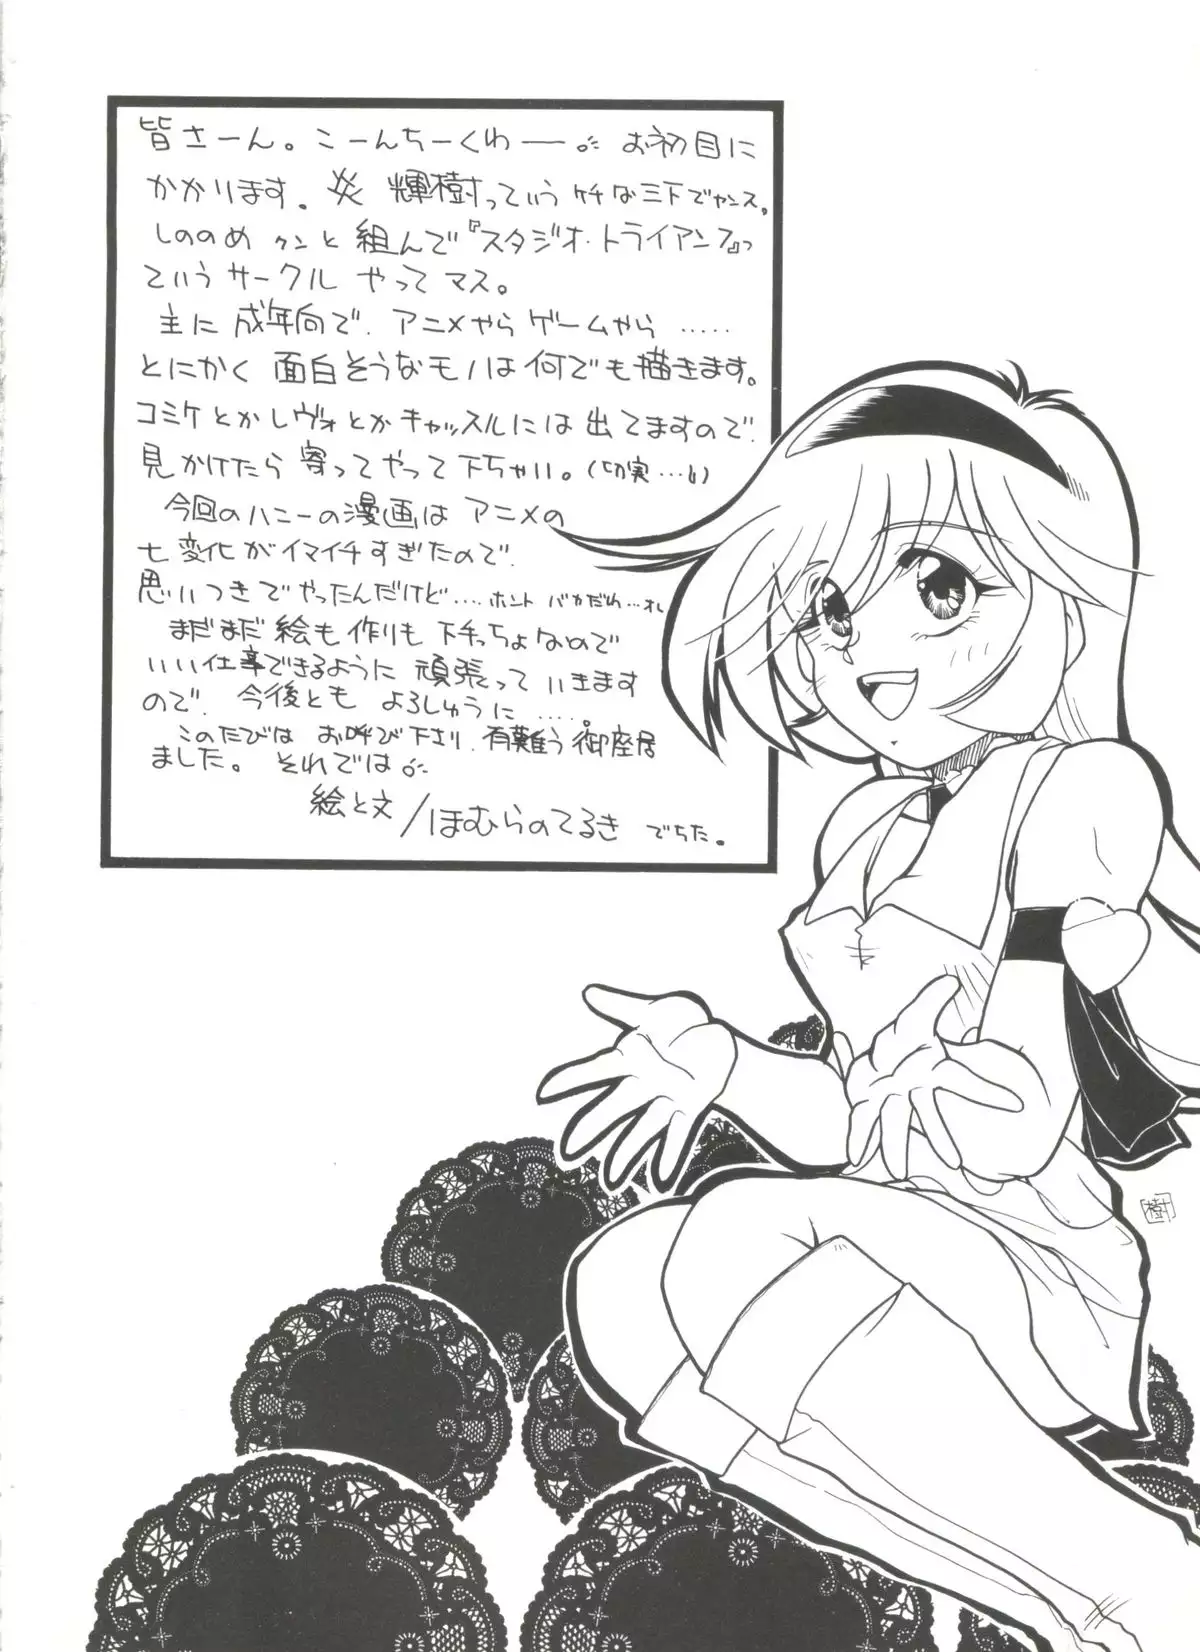 皆さーん。こーんちーくわー。お初目に
かかります。炎 輝樹っていうケチな三下でヤンス。
しののめ クンと 組んで『スタジオ・トライアングル』っ
ていう サークル やってマス。
主に 成年向で、アニメやら ゲームやら ……
とにかく 面白そうなモノは何でも描きます。
コミケとかレヴォとかキャッスルには出てますので、
見かけたら 寄ってやって下ちゃい。(切実…!)
今回のハニーの漫画は アニメの
七変化がイマイチすぎたので、
思いつきでやったんだけど…. ホント バカだわ…オレ
まだまだ 絵も 作りも 下手っちょなので
いい仕事できるように 頑張って いきます
ので、今後とも よろしゅうに….。
このたびは お呼び下さり、有難う御座居
ました。それでは
絵と文/ほむらのてるき でちた。
樹